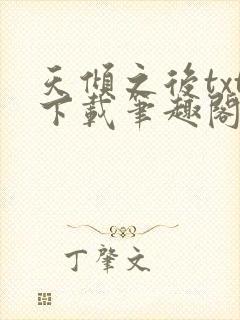 天傾之後txt
下載筆趣閣
丁肇文